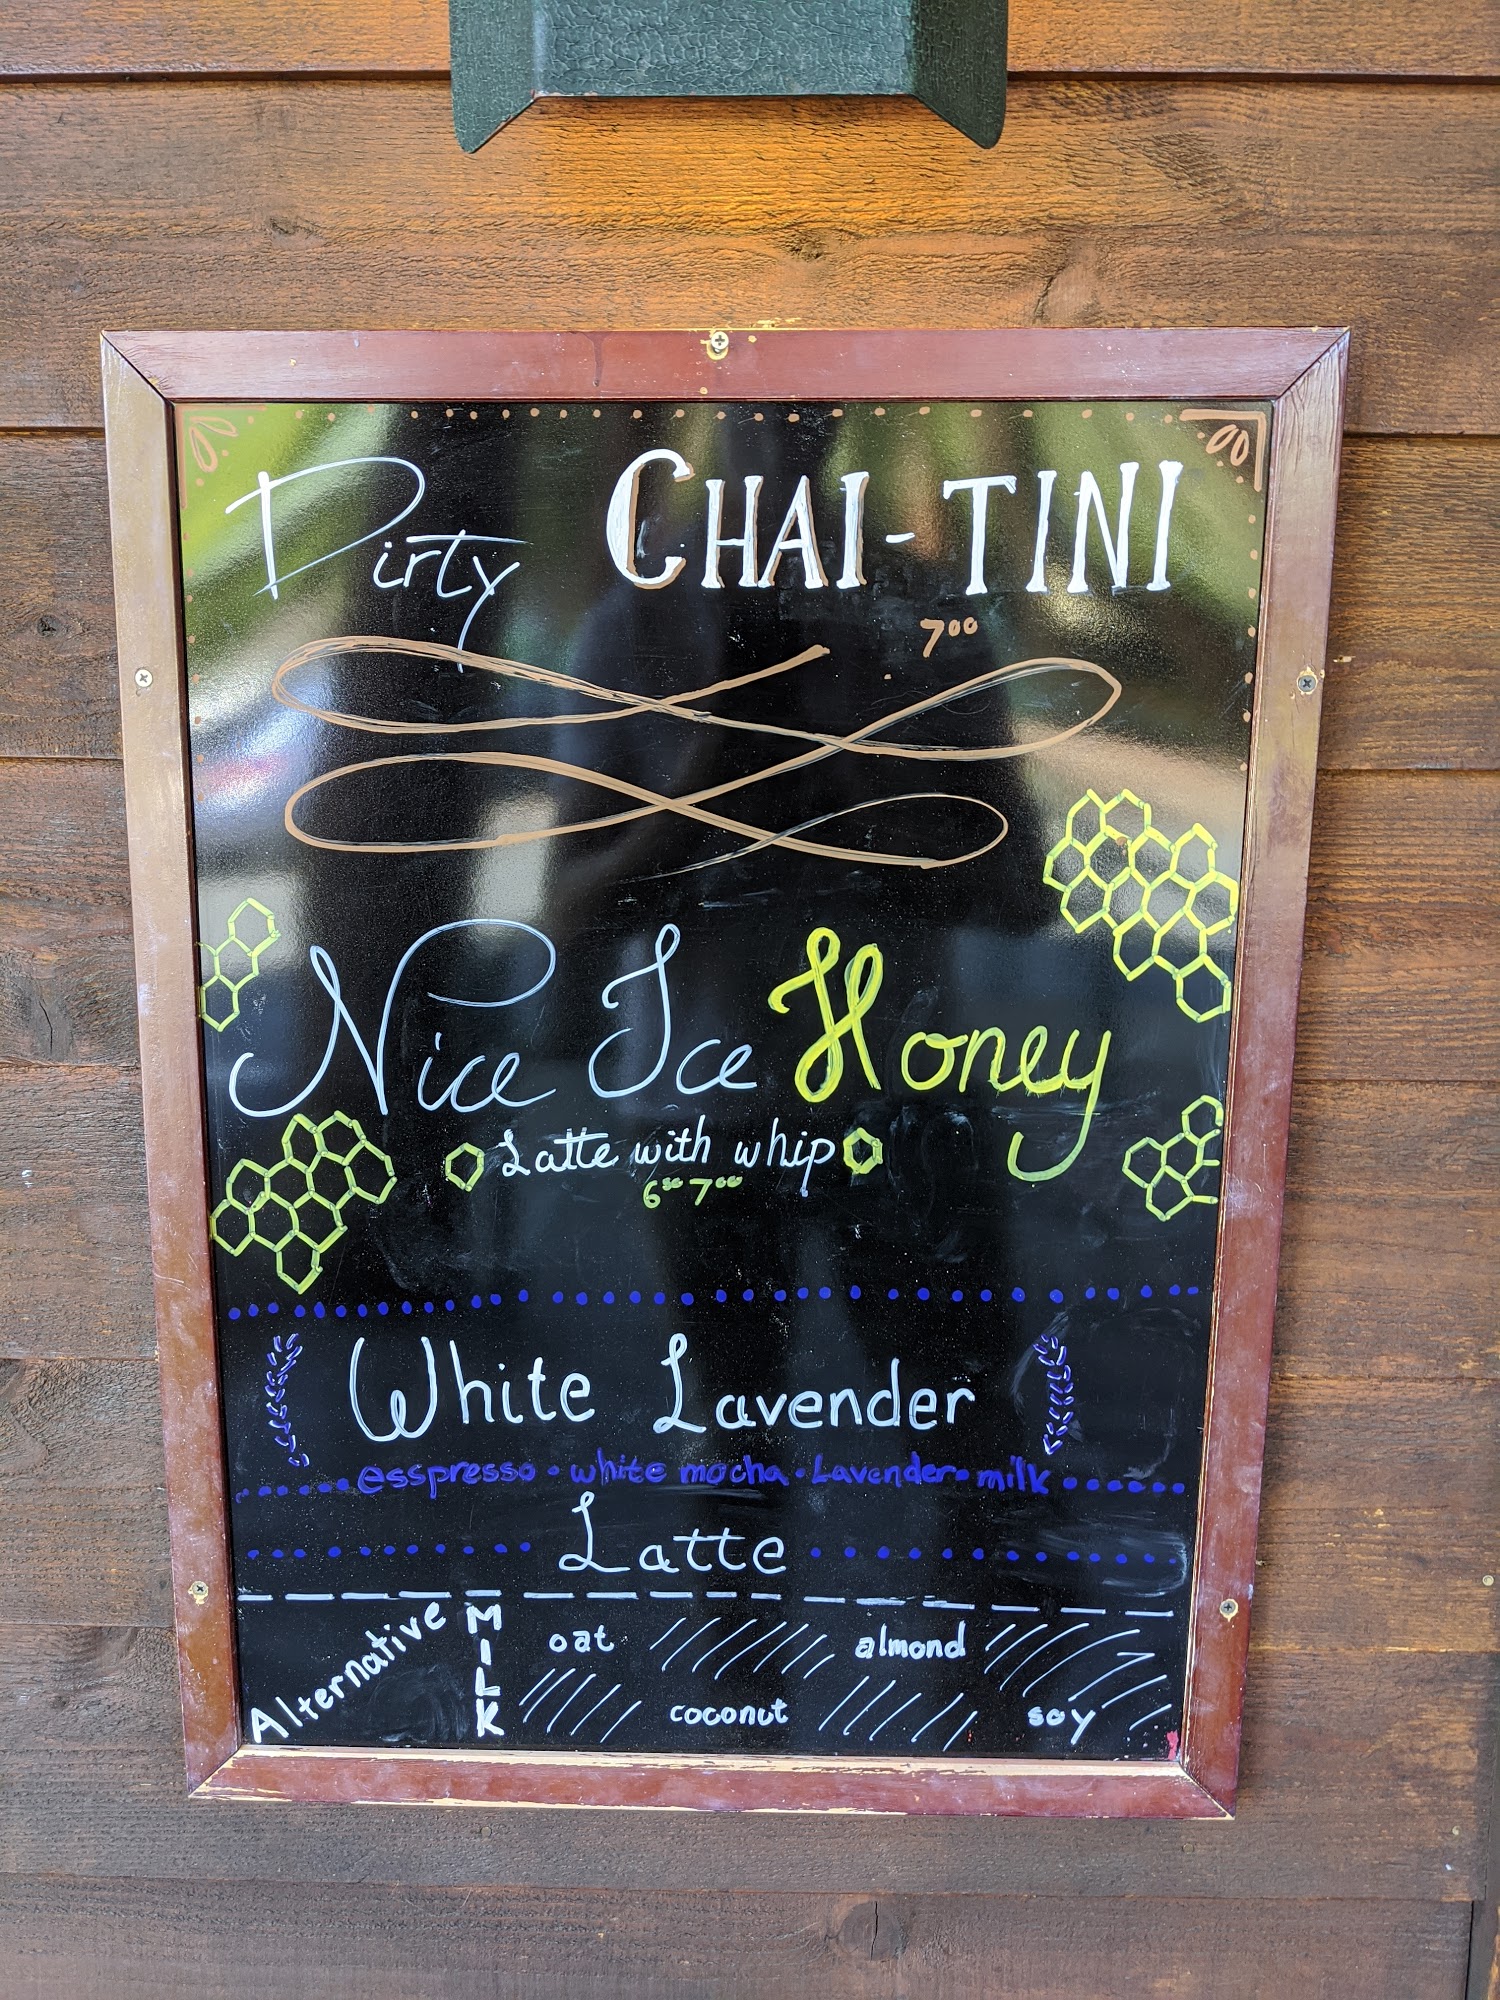 Dirty CHAI-TINI
7⁰⁰
Nice Ice Honey
Latte with whip
6⁵⁰ 7⁰⁰
White Lavender
esspresso • white mocha • Lavender • milk
Latte
Alternative MILK
oat almond
coconut soy